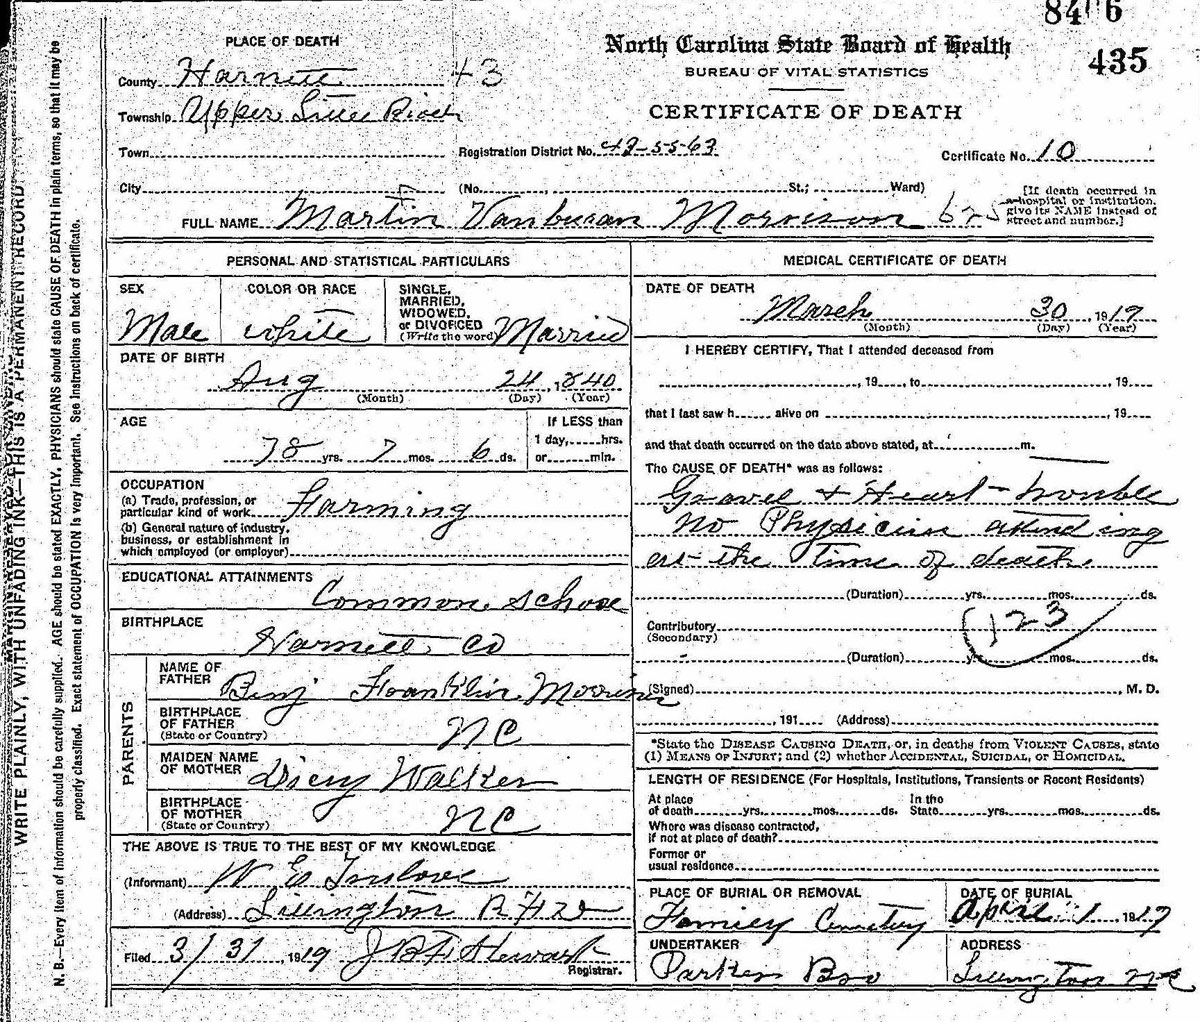 8406
435
PLACE OF DEATH
North Carolina State Board of Health
BUREAU OF VITAL STATISTICS
CERTIFICATE OF DEATH
County Harnett 43
Township Upper Little River
Town
Registration District No. 43-55-63
Certificate No. 10
City (No. St.; Ward)
[If death occurred in a hospital or institution, give its NAME instead of street and number.]
FULL NAME Martin Vanburan Morrison
PERSONAL AND STATISTICAL PARTICULARS
SEX Male
COLOR OR RACE white
SINGLE, MARRIED, WIDOWED, or DIVORCED (Write the word) Married
DATE OF BIRTH
Aug 24, 1840
(Month) (Day) (Year)
AGE
If LESS than
1 day, hrs.
or min.
78 yrs. 7 mos. 6 ds.
OCCUPATION
(a) Trade, profession, or
particular kind of work Farming
(b) General nature of industry,
business, or establishment in
which employed (or employer)
EDUCATIONAL ATTAINMENTS
Common School
BIRTHPLACE
Harnett Co
PARENTS
NAME OF FATHER Benj Franklin Morrison
BIRTHPLACE OF FATHER (State or Country) NC
MAIDEN NAME OF MOTHER Walker
BIRTHPLACE OF MOTHER (State or Country) NC
THE ABOVE IS TRUE TO THE BEST OF MY KNOWLEDGE
(Informant) W E
(Address) Lillington R F D
Filed 3/31 1919 Stewart
Registrar.
MEDICAL CERTIFICATE OF DEATH
DATE OF DEATH
March 30 1919
(Month) (Day) (Year)
I HEREBY CERTIFY, That I attended deceased from
, 19 , to , 19
that I last saw h alive on , 19
and that death occurred on the date above stated, at m.
The CAUSE OF DEATH* was as follows:
Gravel + Heart trouble
No Physician attending
at the time of death.
(Duration) yrs. mos. ds.
Contributory
(Secondary)
123
(Duration) yrs. mos. ds.
(Signed) M. D.
, 191 (Address)
*State the DISEASE CAUSING DEATH, or, in deaths from VIOLENT CAUSES, state
(1) MEANS OF INJURY; and (2) whether ACCIDENTAL, SUICIDAL, or HOMICIDAL.
LENGTH OF RESIDENCE (For Hospitals, Institutions, Transients or Recent Residents)
At place of death yrs. mos. ds. In the State yrs. mos. ds.
Where was disease contracted,
if not at place of death?
Former or
usual residence
PLACE OF BURIAL OR REMOVAL
Family Cemetery
DATE OF BURIAL
April 1 1919
UNDERTAKER
Parker Bro
ADDRESS
Lillington NC
WRITE PLAINLY, WITH UNFADING INK—THIS IS A PERMANENT RECORD
N. B.—Every item of information should be carefully supplied. AGE should be stated EXACTLY. PHYSICIANS should state CAUSE OF DEATH in plain terms, so that it may be
properly classified. Exact statement of OCCUPATION is very important. See instructions on back of certificate.